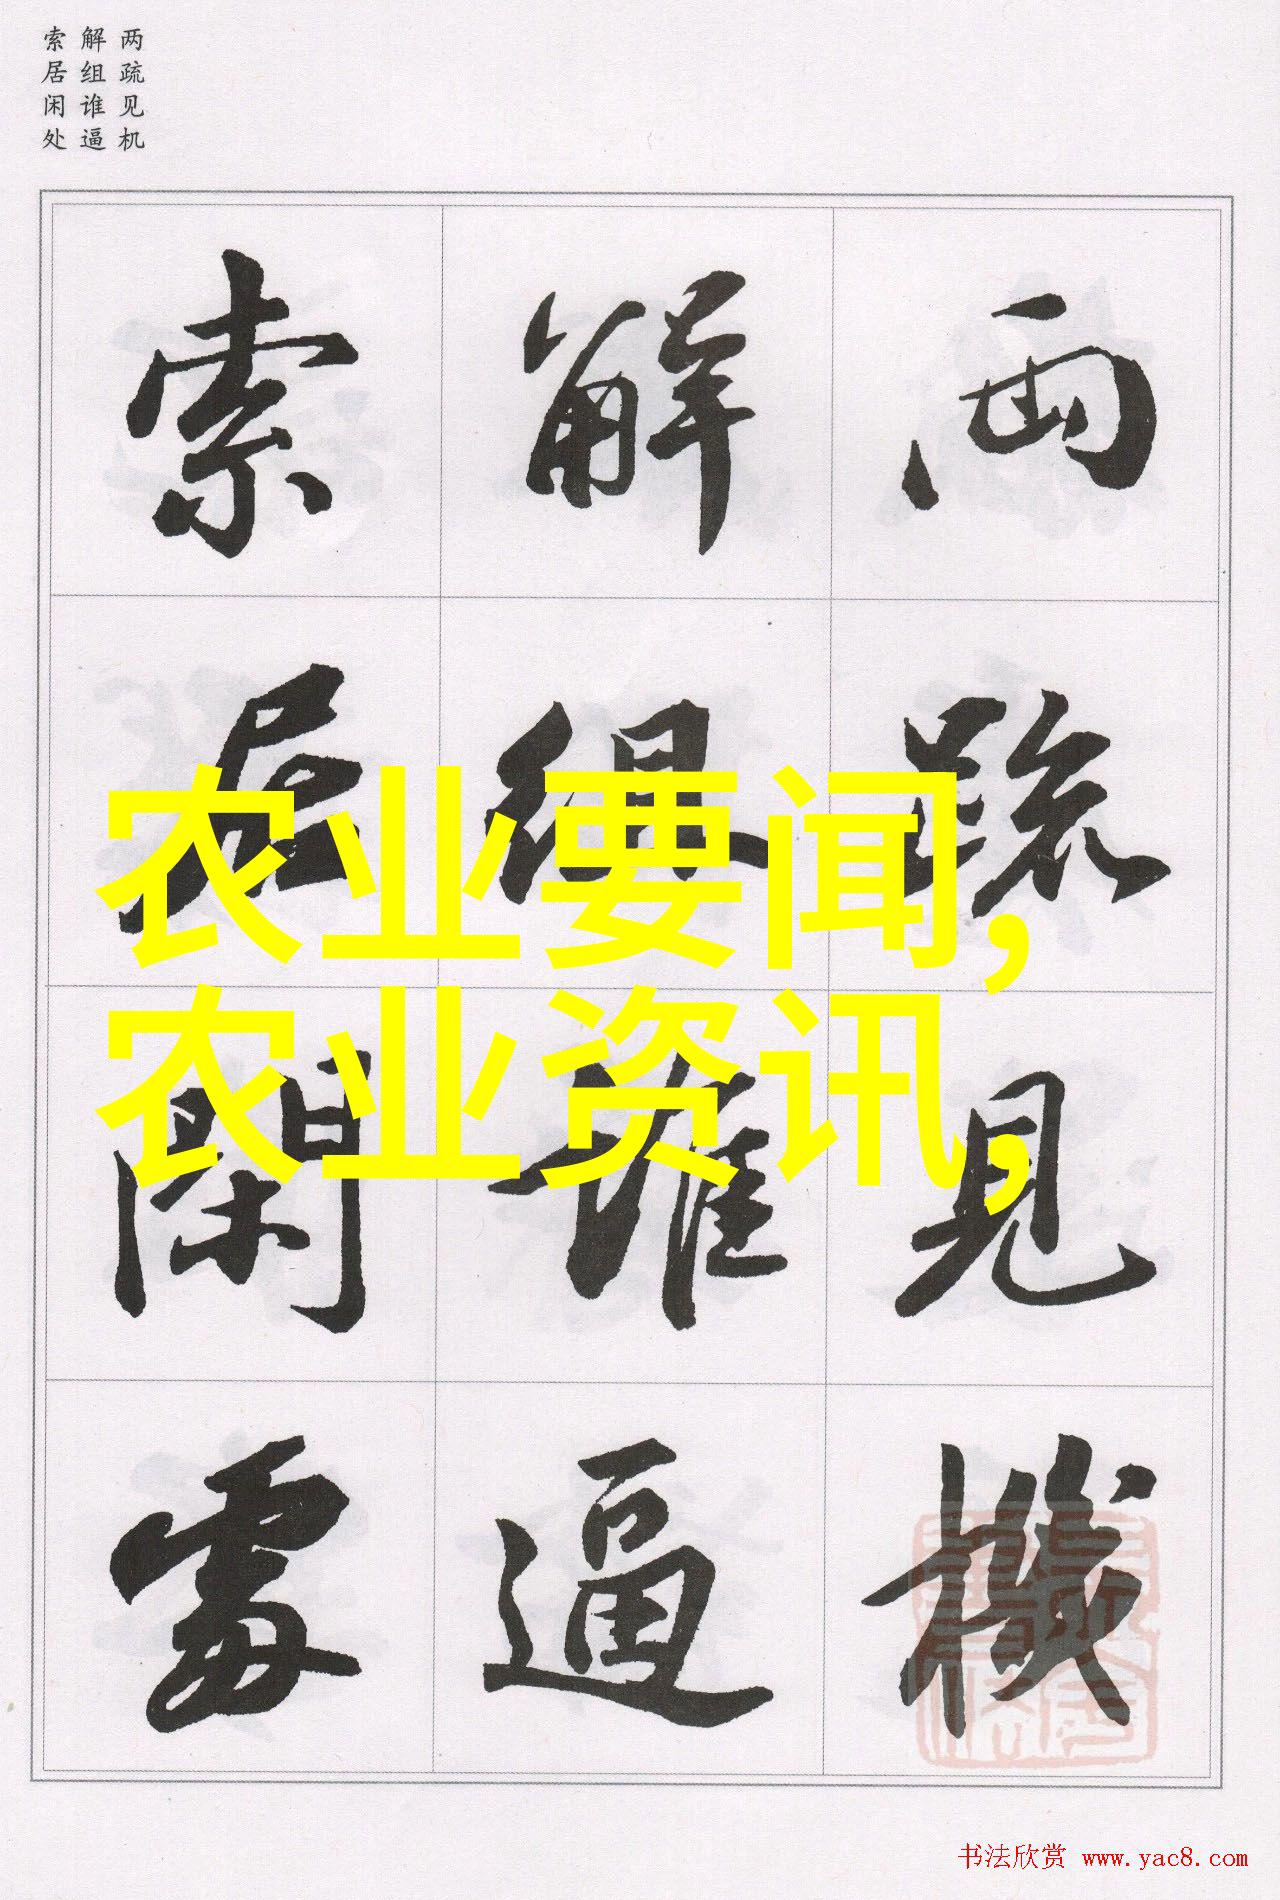 两疏见机
解组谁逼
索居闲处
兩疏見機
解組誰逼
索居閑處
农业要闻,
农业资讯,
书法欣赏 www.yac8.com